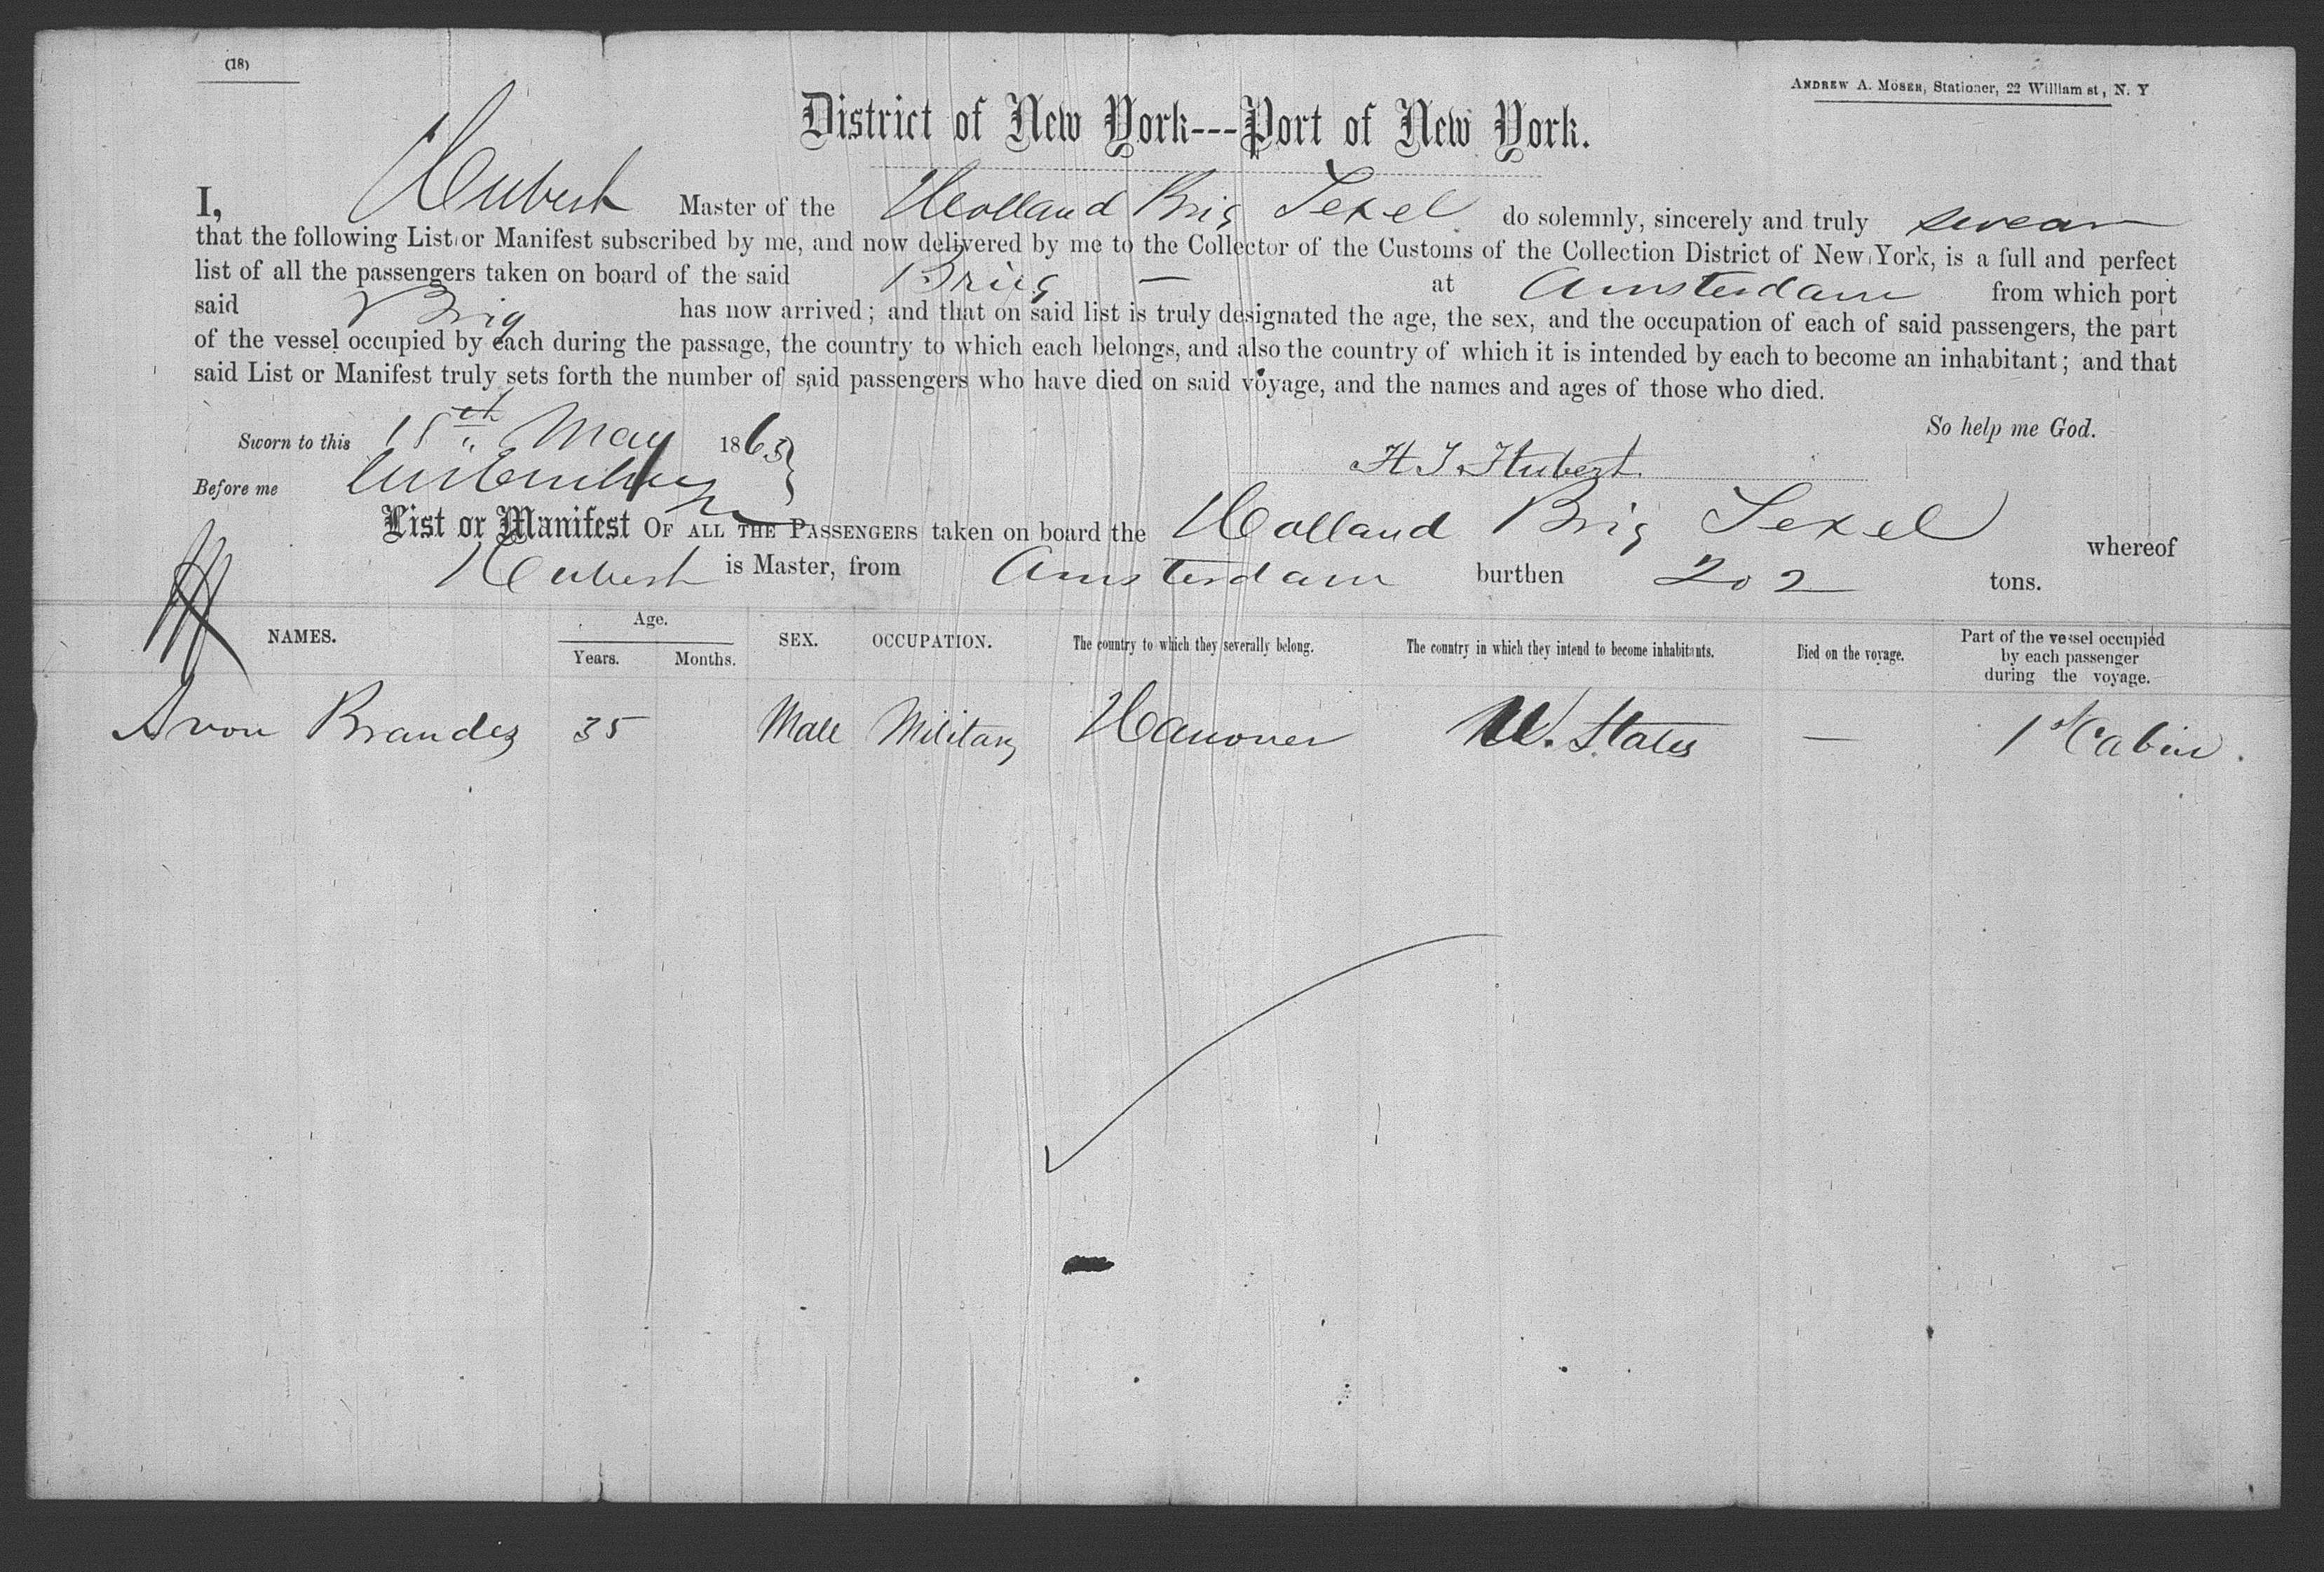 (18)
ANDREW A. MOSER, Stationer, 22 William st, N. Y
District of New York---Port of New York.
I, Hubert Master of the Holland Brig Texel do solemnly, sincerely and truly swear
that the following List or Manifest subscribed by me, and now delivered by me to the Collector of the Customs of the Collection District of New York, is a full and perfect
list of all the passengers taken on board of the said Brig — at Amsterdam from which port
said Brig has now arrived; and that on said list is truly designated the age, the sex, and the occupation of each of said passengers, the part
of the vessel occupied by each during the passage, the country to which each belongs, and also the country of which it is intended by each to become an inhabitant; and that
said List or Manifest truly sets forth the number of said passengers who have died on said voyage, and the names and ages of those who died.
So help me God.
Sworn to this 18th May 1863
H J Hubert
Before me
List or Manifest OF ALL THE PASSENGERS taken on board the Holland Brig Texel whereof
Hubert is Master, from Amsterdam burthen 202 tons.
NAMES. Age. Years. Months. SEX. OCCUPATION. The country to which they severally belong. The country in which they intend to become inhabitants. Died on the voyage. Part of the vessel occupied by each passenger during the voyage.
A von Brandes 35 Male Military Hanover U. States — 1st Cabin.